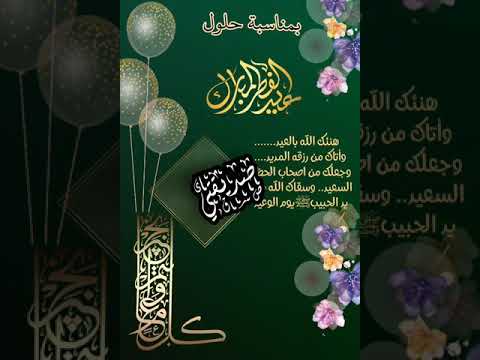 بمناسبة حلول
عيد الفطر المبارك
هنئك الله بالعيد.......
وأتاك من رزقه المديد....
وجعلك من اصحاب الحظ
السعيد.. وسقاك الله
بر الحبيب ﷺ يوم الوعيد
صديقتي
كل عام